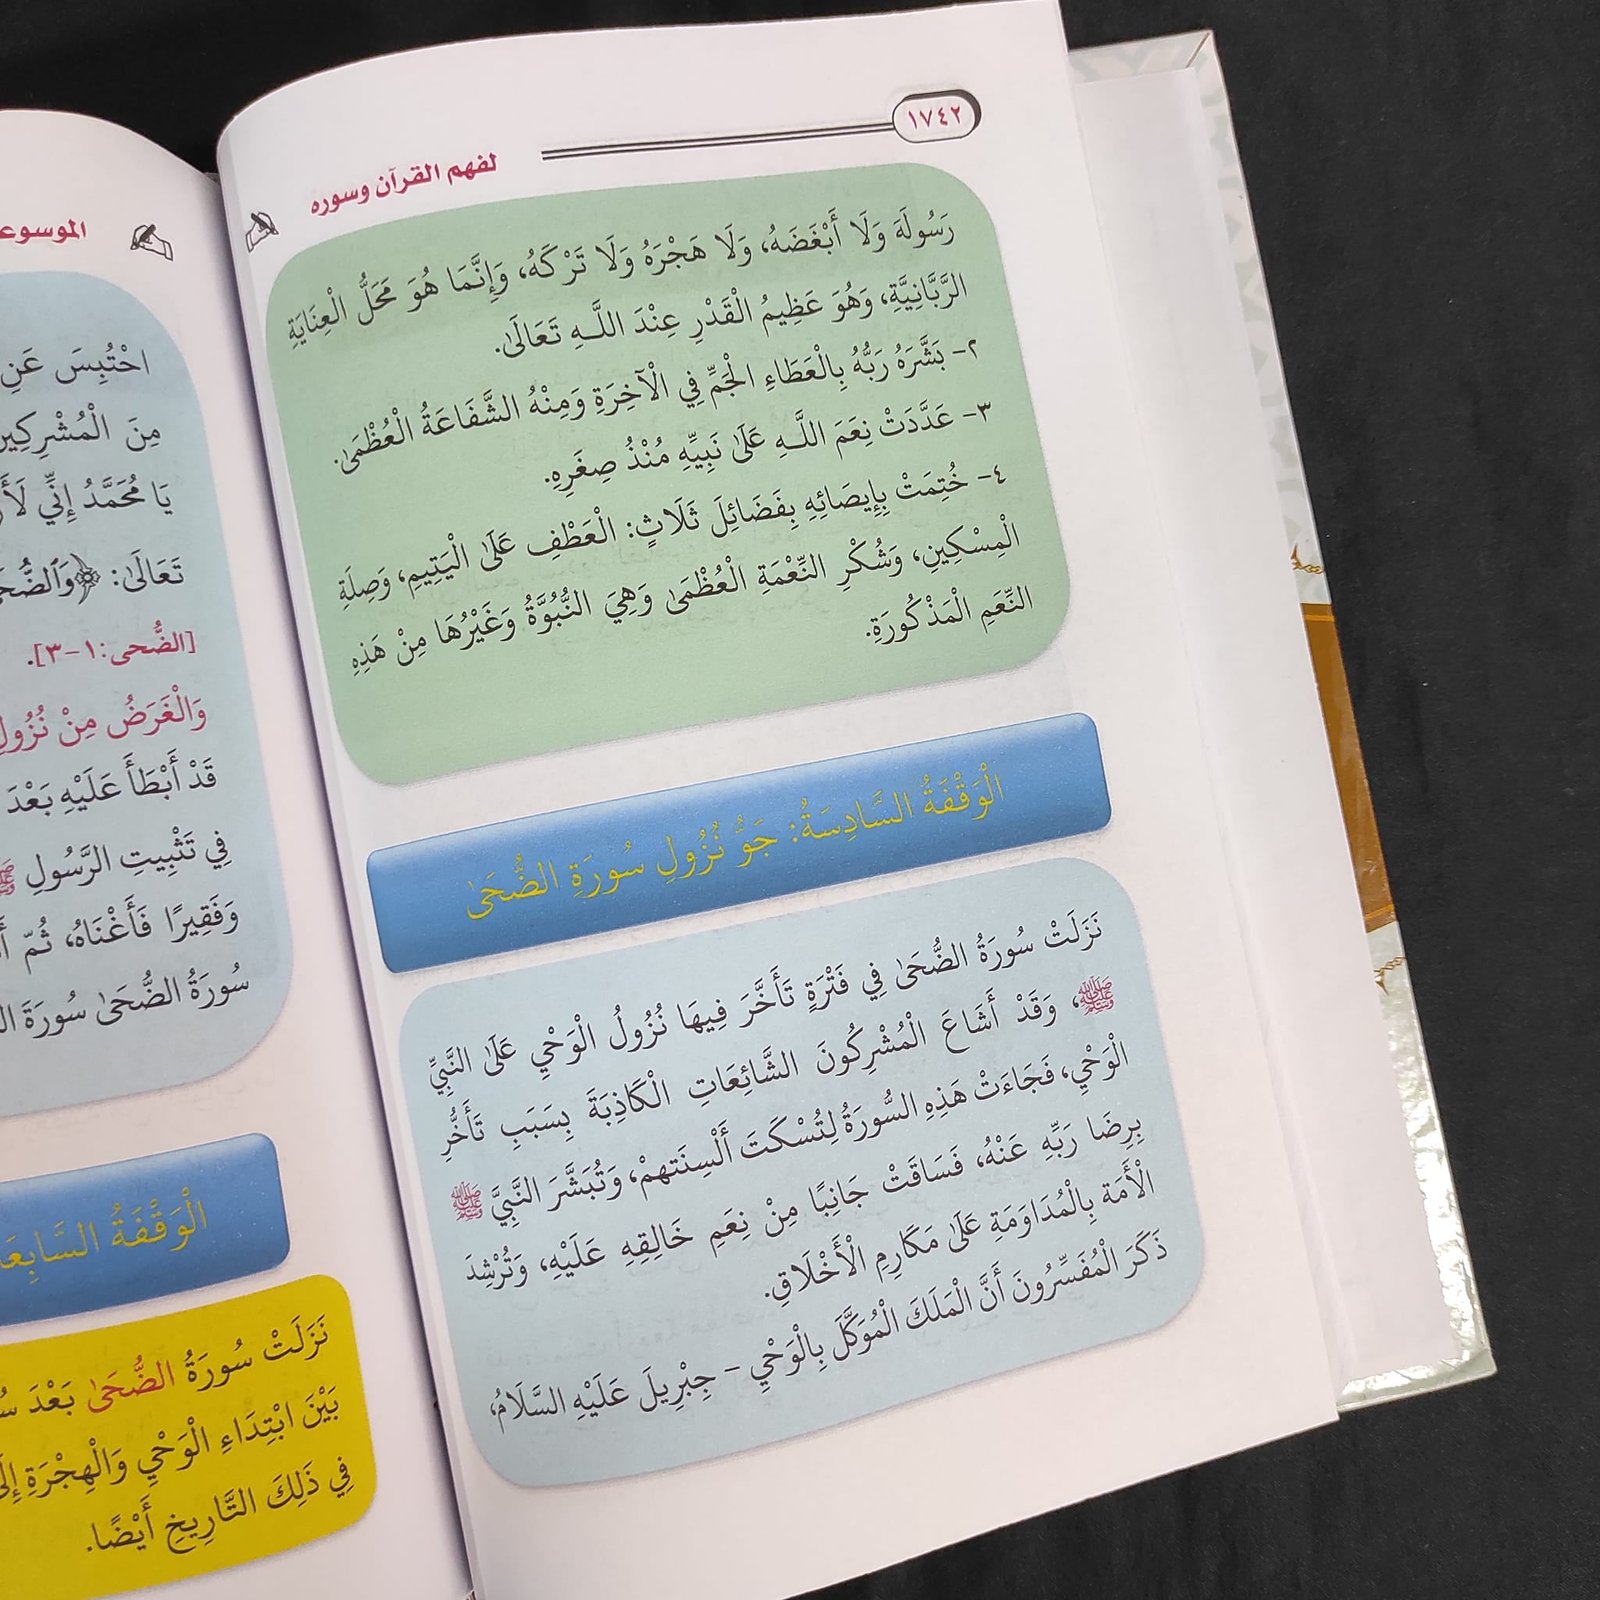 ١٧٤٢
لفهم القرآن وسوره
رَسُولَهُ وَلَا أَبْغَضَهُ، وَلَا هَجْرَهُ وَلَا تَرْكَهُ، وَإِنَّمَا هُوَ مَحَلُّ الْعِنَايَةِ
الرَّبَّانِيَّةِ، وَهُوَ عَظِيمُ الْقَدْرِ عِنْدَ اللَّـهِ تَعَالَىٰ.
٢- بَشَّرَهُ رَبُّهُ بِالْعَطَاءِ الْجَمِّ فِي الْآخِرَةِ وَمِنْهُ الشَّفَاعَةُ الْعُظْمَىٰ.
٣- عَدَّدَتْ نِعَمَ اللَّـهِ عَلَىٰ نَبِيِّهِ مُنْذُ صِغَرِهِ.
٤- خُتِمَتْ بِإِيصَائِهِ بِفَضَائِلَ ثَلَاثٍ: الْعَطْفِ عَلَىٰ الْيَتِيمِ، وَصِلَةِ
الْمِسْكِينِ، وَشُكْرِ النِّعْمَةِ الْعُظْمَىٰ وَهِيَ النُّبُوَّةُ وَغَيْرُهَا مِنْ هَذِهِ
النِّعَمِ الْمَذْكُورَةِ.
الْوَقْفَةُ السَّادِسَةُ: جَوُّ نُزُولِ سُورَةِ الضُّحَىٰ
نَزَلَتْ سُورَةُ الضُّحَىٰ فِي فَتْرَةٍ تَأَخَّرَ فِيهَا نُزُولُ الْوَحْيِ عَلَىٰ النَّبِيِّ
ﷺ، وَقَدْ أَشَاعَ الْمُشْرِكُونَ الشَّائِعَاتِ الْكَاذِبَةَ بِسَبَبِ تَأَخُّرِ
الْوَحْيِ، فَجَاءَتْ هَذِهِ السُّورَةُ لِتُسْكَتَ أَلْسِنَتهمْ، وَتُبَشَّرَ النَّبِيَّ ﷺ
بِرِضَا رَبِّهِ عَنْهُ، فَسَاقَتْ جَانِبًا مِنْ نِعَمِ خَالِقِهِ عَلَيْهِ، وَتُرْشِدَ
الْأُمَة بِالْمُدَاوَمَةِ عَلَىٰ مَكَارِمِ الْأَخْلَاقِ.
ذَكَرَ الْمُفَسِّرُونَ أَنَّ الْمَلَكَ الْمُوَكَّلَ بِالْوَحْيِ – جِبْرِيلَ عَلَيْهِ السَّلَامُ،
احْتُبِسَ عَنِ
مِنَ الْمُشْرِكِينَ
يَا مُحَمَّدُ إِنِّي
تَعَالَىٰ: ﴿وَٱلضُّحَىٰ
[الضُّحى:١-٣].
وَالْغَرَضُ مِنْ نُزُولِ
قَدْ أَبْطَأَ عَلَيْهِ بَعْدَ
فِي تَثْبِيتِ الرَّسُولِ ﷺ
وَفَقِيرًا فَأَغْنَاهُ، ثُمّ
سُورَةُ الضُّحَىٰ سُورَةَ
الْوَقْفَةُ السَّابِعَةُ
نَزَلَتْ سُورَةُ الضُّحَىٰ بَعْدَ
بَيْنَ ابْتِدَاءِ الْوَحْيِ وَالْهِجْرَةِ إِلَى
فِي ذَلِكَ التَّارِيخِ أَيْضًا.